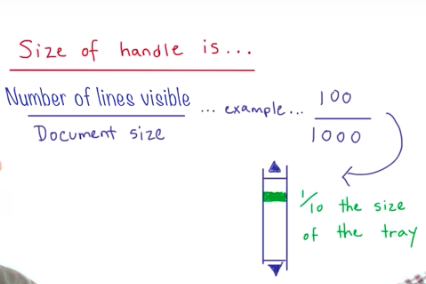 Size of handle is...
Number of lines visible
Document size
... example...
100
1000
1/10 the size
of the tray